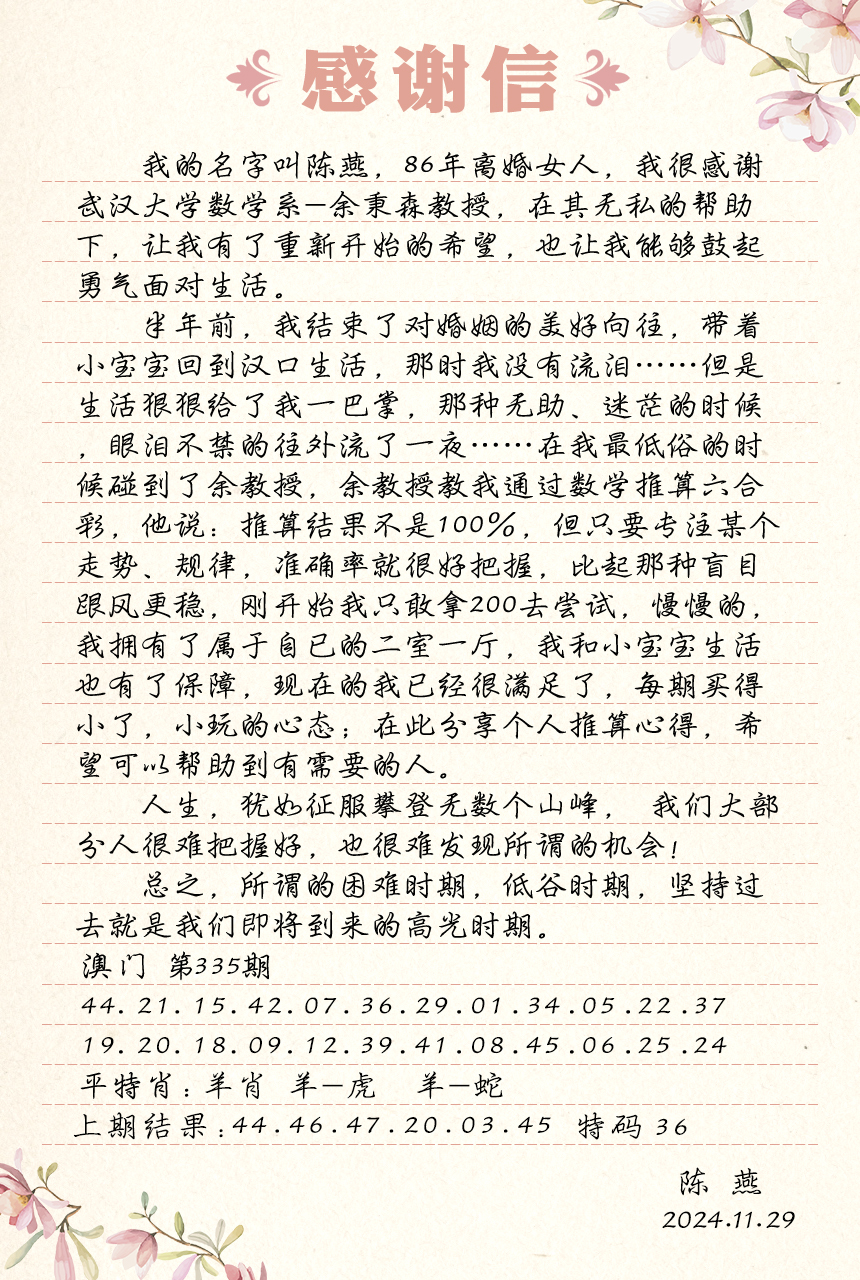 感谢信
我的名字叫陈燕，86年离婚女人，我很感谢
武汉大学数学系—余秉森教授，在其无私的帮助
下，让我有了重新开始的希望，也让我能够鼓起
勇气面对生活。
半年前，我结束了对婚姻的美好向往，带着
小宝宝回到汉口生活，那时我没有流泪……但是
生活狠狠给了我一巴掌，那种无助、迷茫的时候
，眼泪不禁的往外流了一夜……在我最低俗的时
候碰到了余教授，余教授教我通过数学推算六合
彩，他说：推算结果不是100%，但只要专注某个
走势、规律，准确率就很好把握，比起那种盲目
跟风更稳，刚开始我只敢拿200去尝试，慢慢的，
我拥有了属于自己的二室一厅，我和小宝宝生活
也有了保障，现在的我已经很满足了，每期买得
小了，小玩的心态；在此分享个人推算心得，希
望可以帮助到有需要的人。
人生，犹如征服攀登无数个山峰， 我们大部
分人很难把握好，也很难发现所谓的机会！
总之，所谓的困难时期，低谷时期，坚持过
去就是我们即将到来的高光时期。
澳门 第335期
44.21.15.42.07.36.29.01.34.05.22.37
19.20.18.09.12.39.41.08.45.06.25.24
平特肖：羊肖 羊—虎 羊—蛇
上期结果：44.46.47.20.03.45 特码 36
陈 燕
2024.11.29